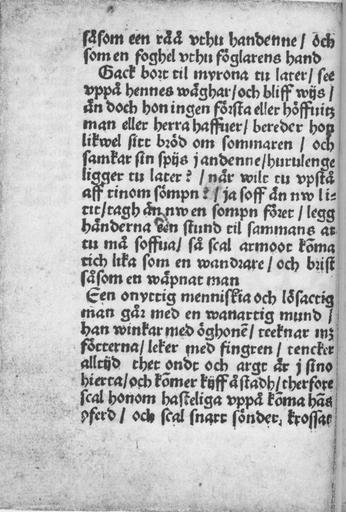 såsom een råå vthu handenne / och
som en foghel vthu föglarens hand
Gack bort til myrona tu later / see
vppå hennes wäghar / och bliff wijs /
än doch hon ingen första eller höffuitz
man eller herra haffuer / bereder hon
likwel sitt bröd om sommaren / och
samkar sin spijs j andenne / huru lenge
ligger tu later ? / när wilt tu vpstå
aff tinom sömpn ? / ja soff än nw li-
tit / tagh än nw en sompn föret / legg
händerna een stund til sammans at
tu må soffua / så scal armoot kõma
tich lika som en wandrare / och brist
såsom en wäpnat man
Een onyttig menniskia och lösactig
man går med en wanartig mund /
han winkar med öghonẽ / teeknar mz
fötterna / leker med fingren / tencker
alltijd thet ondt och argt är j sino
hierta / och kõmer kijff åstadh / therfore
scal honom hasteliga vppå kõma hãs
offerd / och scal snart sönder, krossat